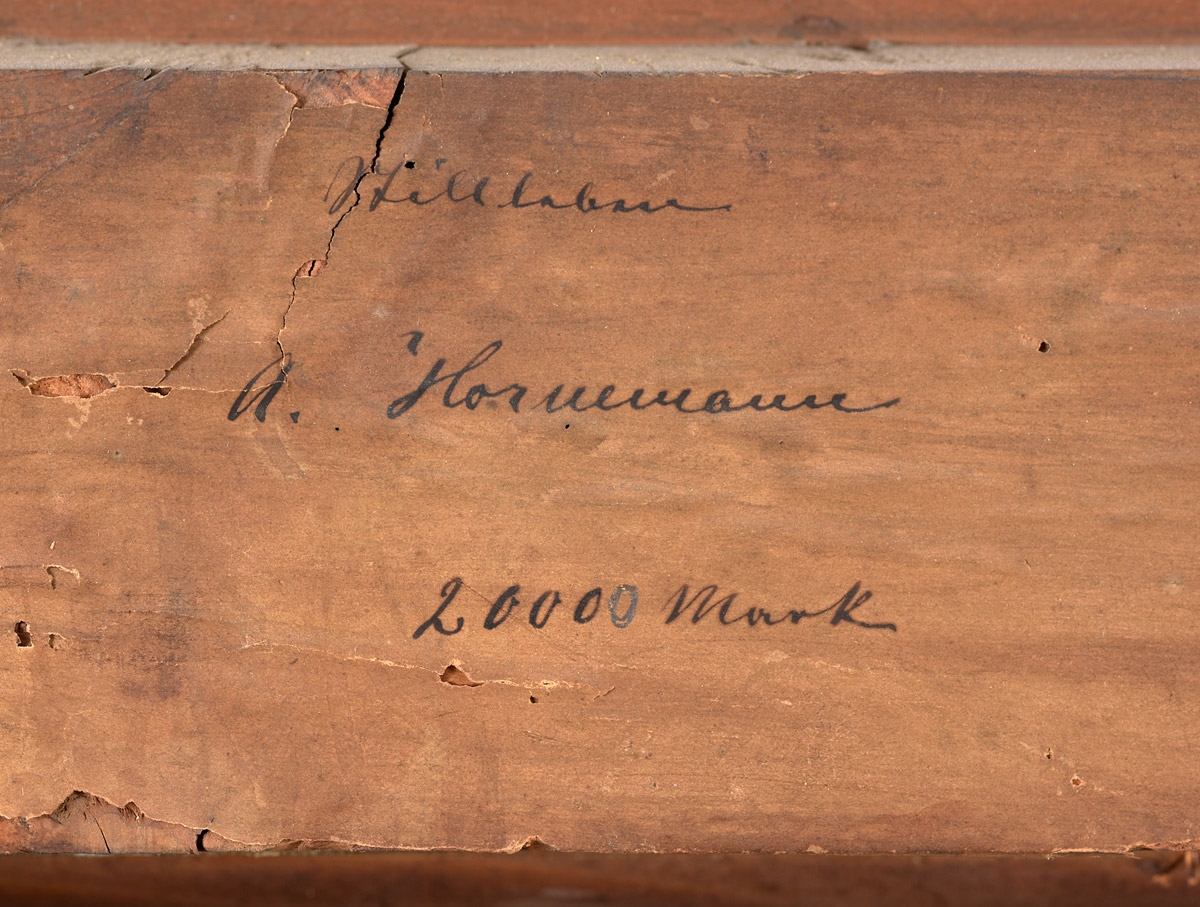 Stillleben
A. Hornemann
20000 Mark